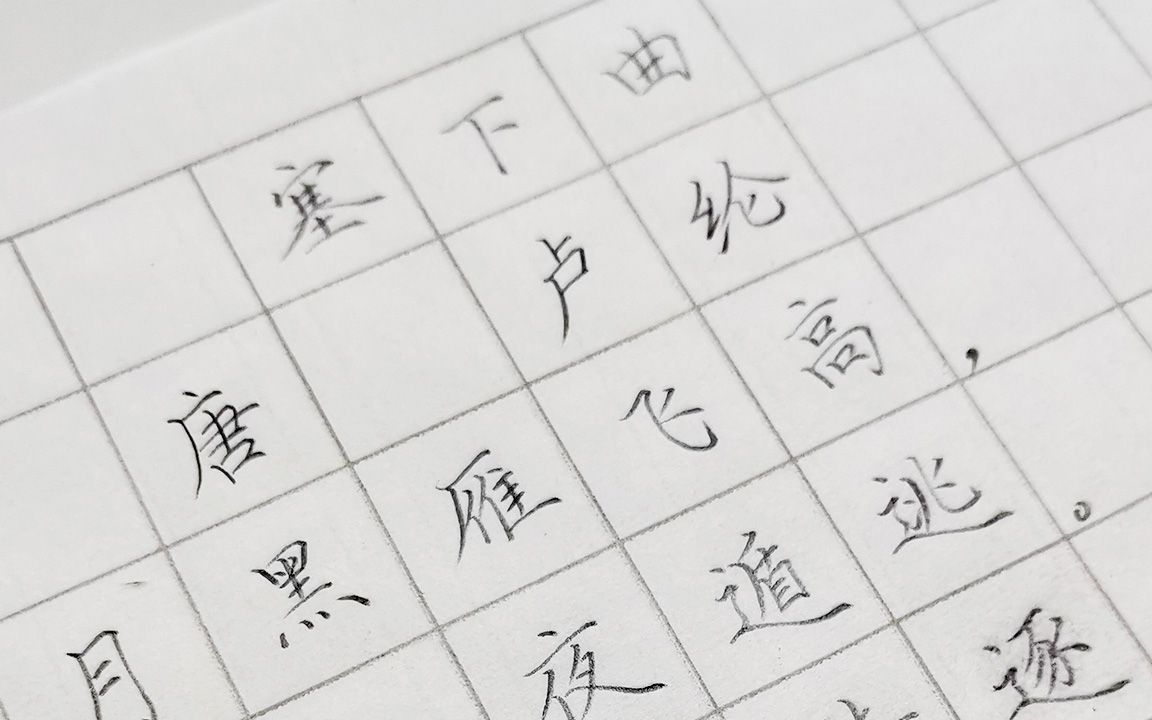 塞下曲
唐 卢纶
月黑雁飞高，
夜遁逃。
逐